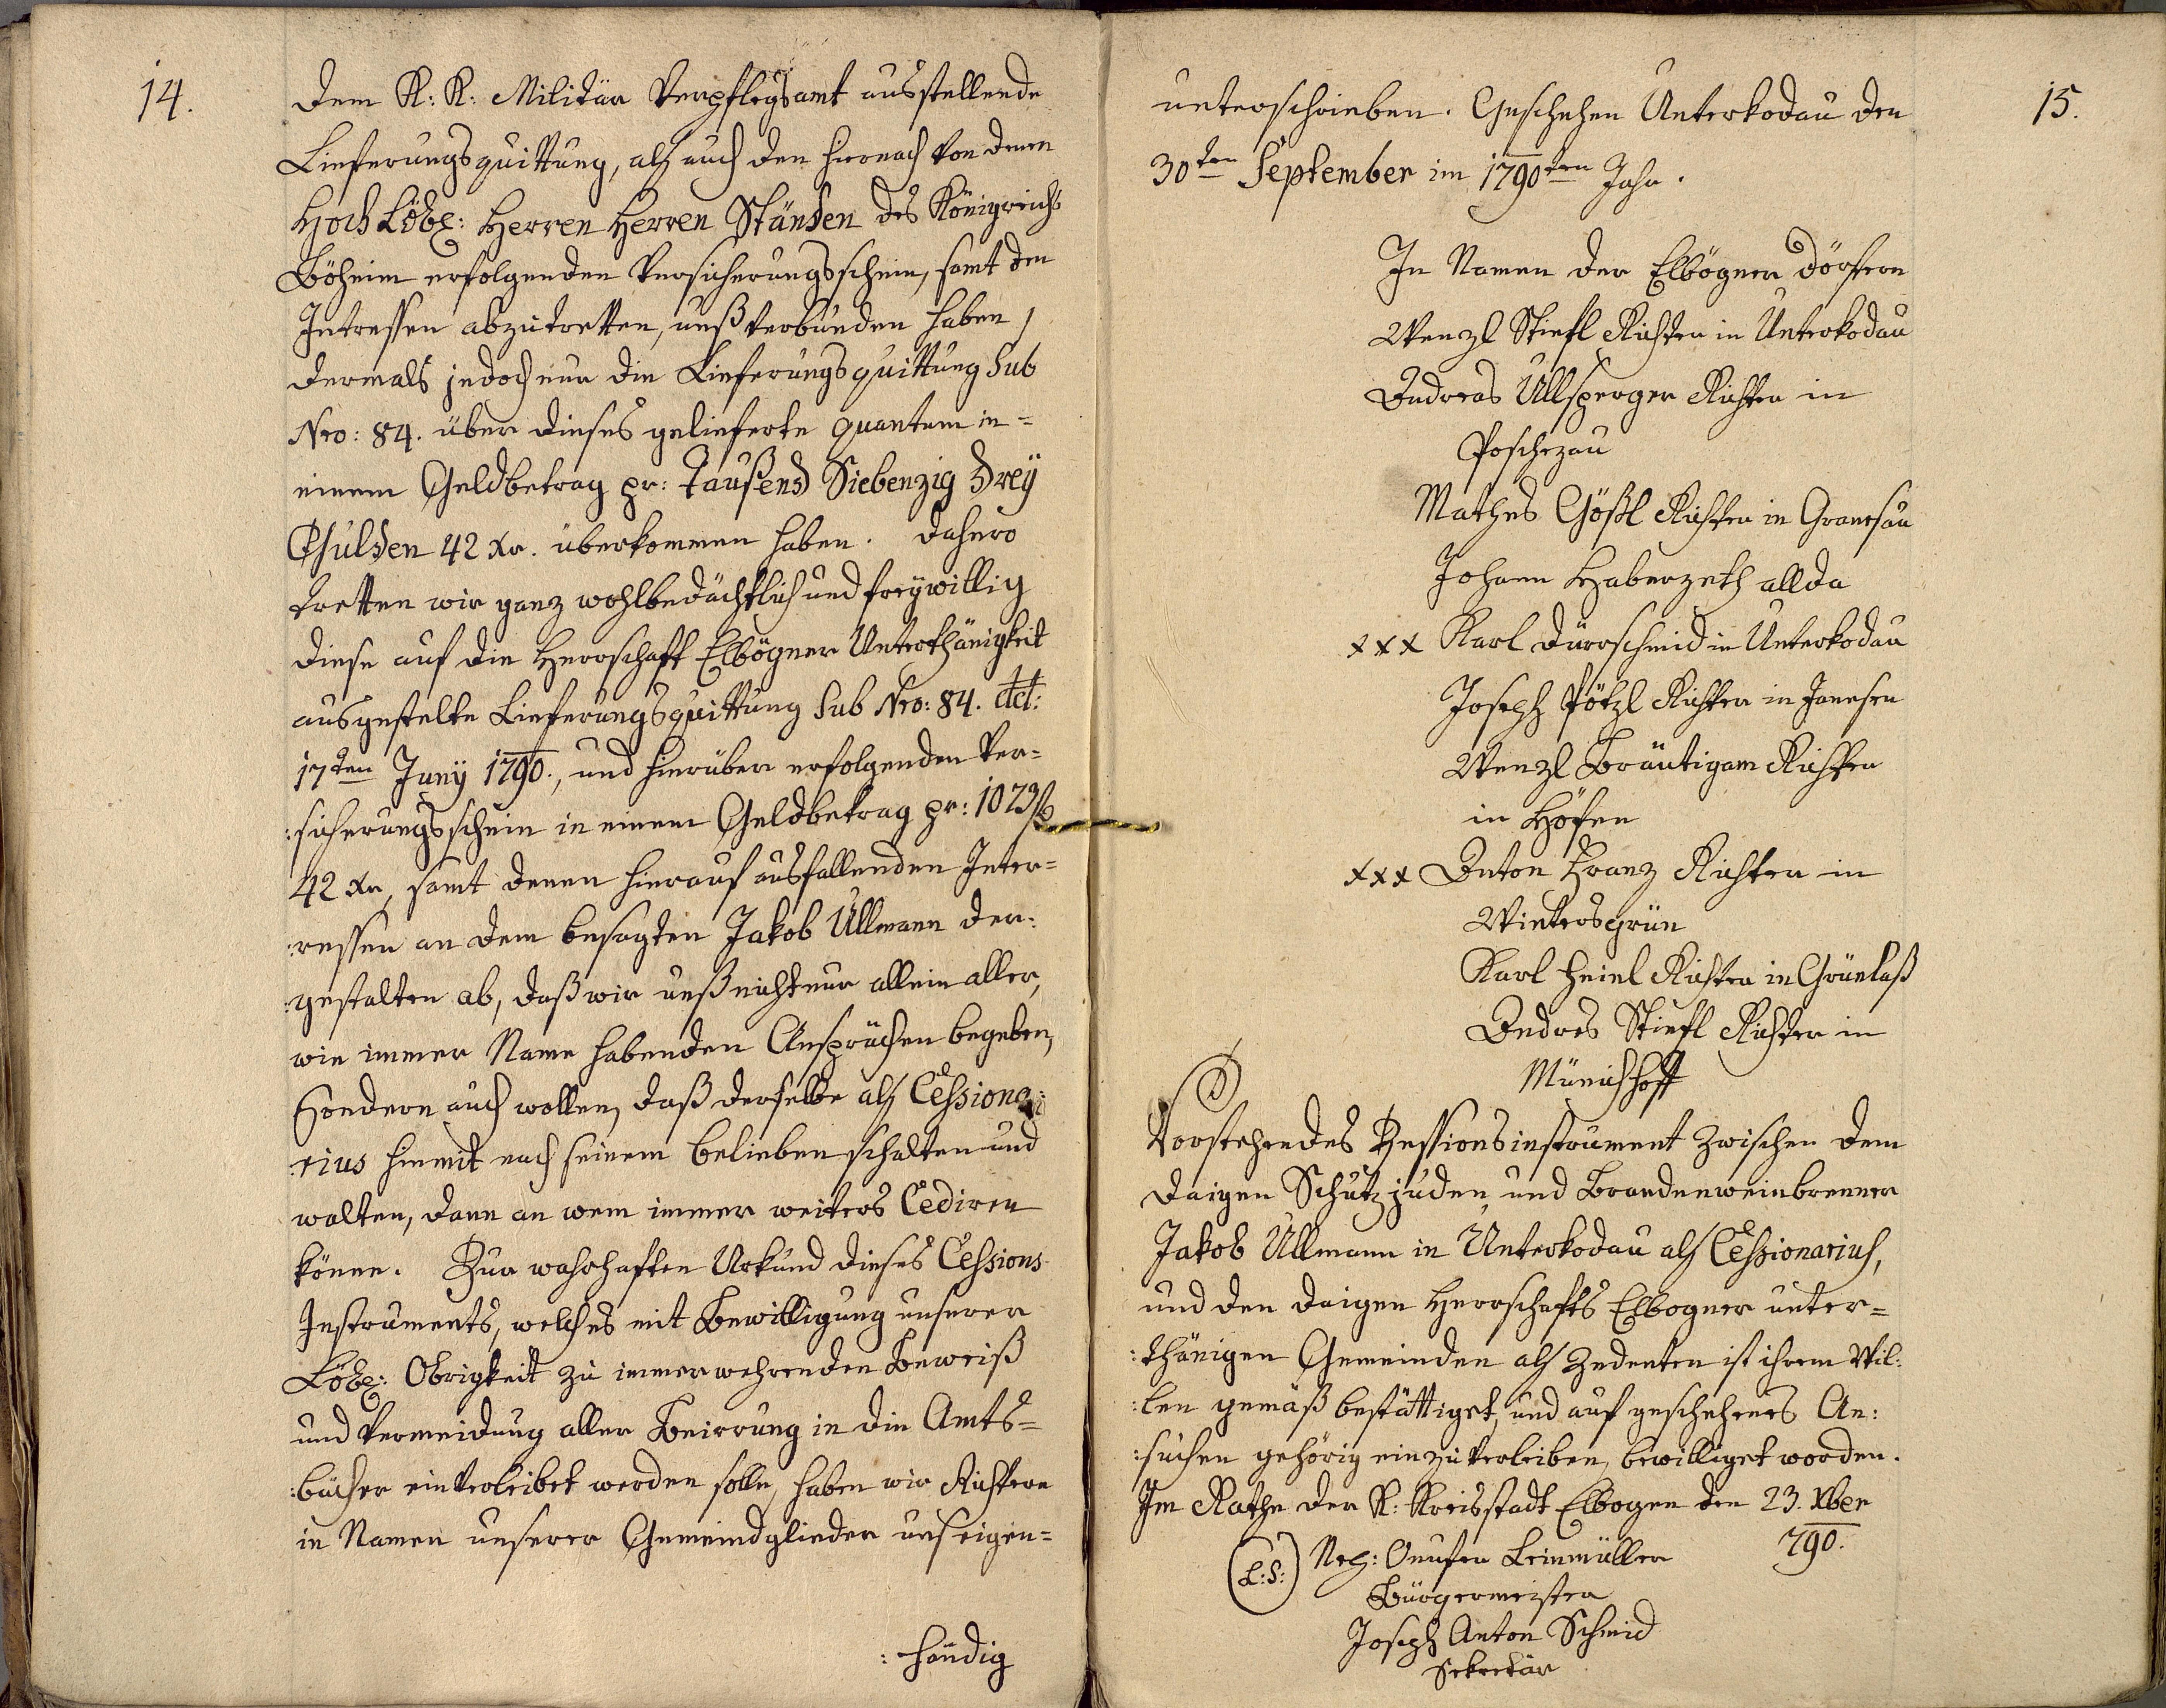 14.
dem K: K: Militär Verpflegsamt ausstellende
Lieferungsquittung, als auch den hiernach von denen
Hoch Löbl: Herren Herren Ständen des Königreichs
Böheim erfolgenden Versicherungsschein, samt den
Intressen abzutretten, unß verbunden haben,
dermals jedoch nur die Lieferungsquittung Sub
Nro: 84. über dieses gelieferte quantum in=
einem Geldbetrag pr: Taußend Siebenzig Drey
Gulden 42 Xr. überkommen haben. Dahero
tretten wir ganz wohlbedächtlich und freywillig
diese auf die Herrschaft Elbögner Unterthänigkeit
ausgestelte Lieferungsquittung Sub Nro: 84. dt:
17ten Juny 1790., und hierüber erfolgenden Ver=
:sicherungsschein in einem Geldbetrag pr: 1073 f
42 Xr, samt denen hierauf ausfallenden Inter=
:ressen an dem besagten Jakob Ullmann der:
:gestalten ab, daß wir unß nicht nur allein aller,
wie immer Name habenden Ansprüchen begeben,
Sondern auch wollen, daß derselbe als Cessiona:
:rius hiemit nach seinem belieben schalten und
walten, dann an wem immer weiters Cediren
könne. Zur wahrhaften Urkund dieses Cessions
Instruments, welches mit Bewilligung unserer
Löbl: Obrigkeit zu immerwehrenden Beweiß
und Vermeidung aller Beirrung in die Amts=
:bücher einverleibet werden solle, haben wir Richtern
in Namen unserer Gemeindglieder uns eigen=
:händig
15.
unterschrieben. Geschehen Unterkodau den
30ten September im 1790ten Jahr.
In Namen der Elbögner dörfern
Wenzl Stiefl Richter in Unterkodau
Andreas Ullsperger Richter in
Poschezau
Mathes Gößl Richter in Granesau
Johann Haberzeth allda
xxx Karl Dürrschmid in Unterkodau
Joseph Pötzl Richter in Janesen
Wenzl Bräutigam Richter
in Höfen
xxx Anton Kranz Richter in
Wintersgrün
Karl Heinl Richter in Grünlaß
Andres Stiefl Richter in
Münichhoff
Vorstehendes Zessionsinstrument zwischen dem
daigen Schutzjuden und Brandenweinbrenner
Jakob Ullmann in Unterkodau als Cessionarius,
und den daigen Herrschafts Elbogner unter=
:thänigen Gemeinden als Zedenten ist ihrem Wil:
:len gemäß bestättiget, und auf geschehenes An:
:suchen gehörig einzuverleiben, bewilliget worden.
Im Rathe der K: Kreisstadt Elbogen den 23. Xber
790.
(L:S:) Onufer Leinmüller
Bürgermeister
Joseph Anton Schmid
Sekretär